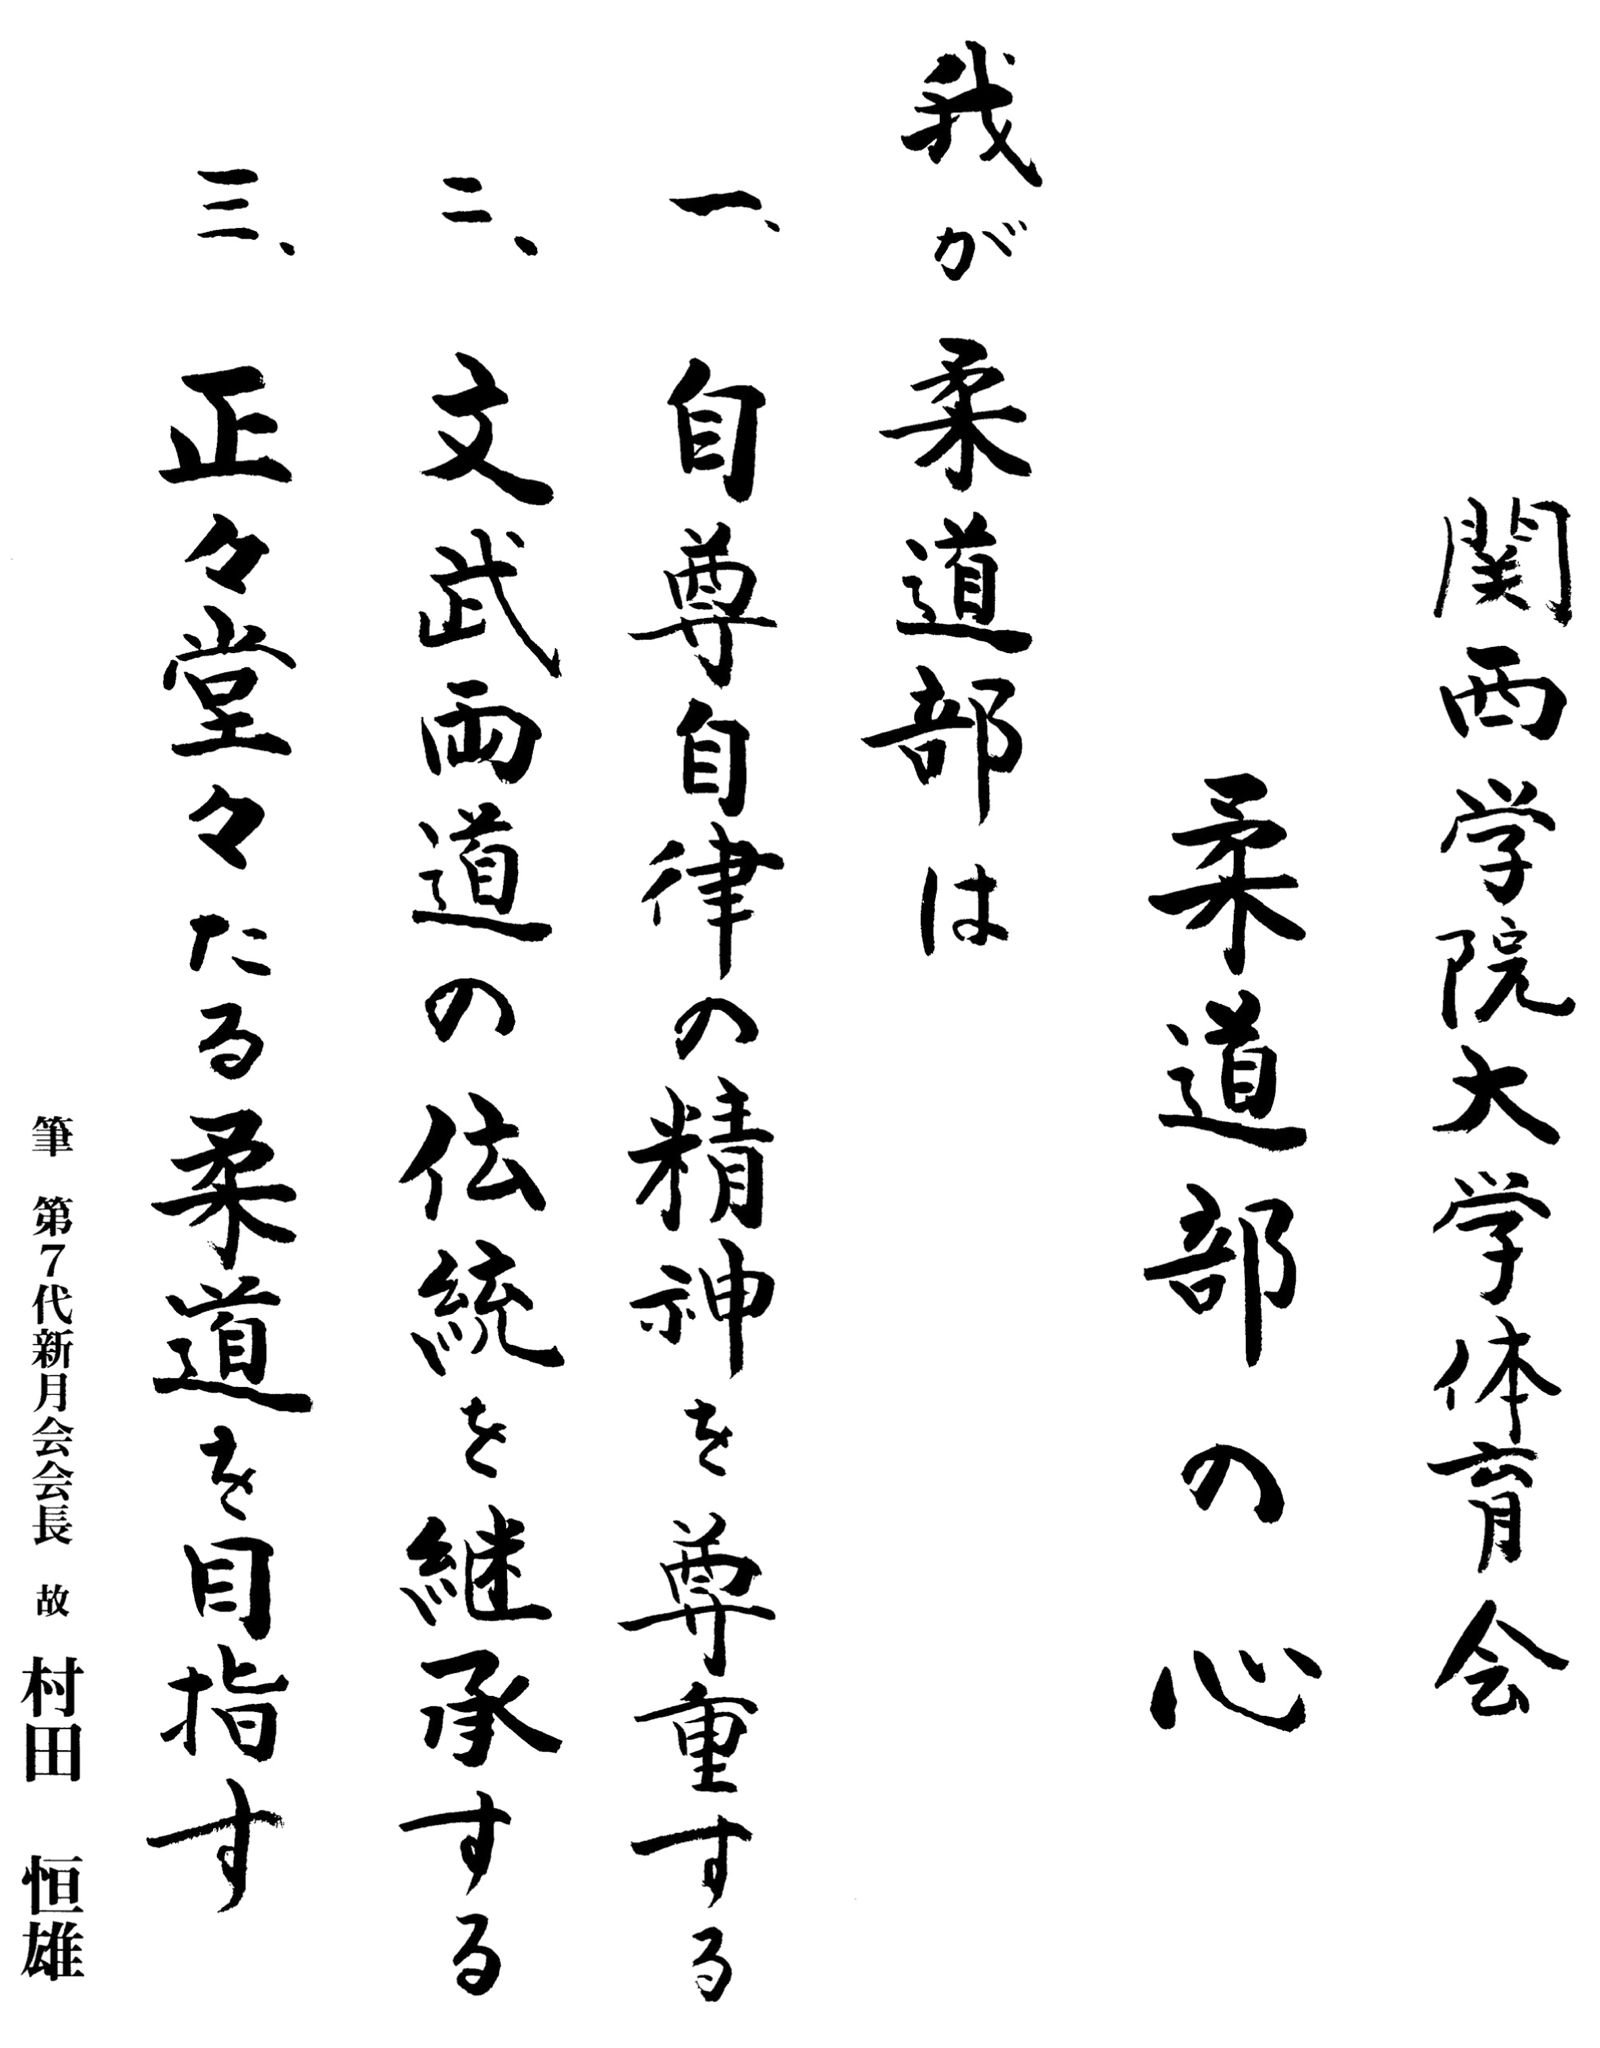 関西学院大学体育会
柔道部の心
我が柔道部は
一、自尊自律の精神を尊重する
二、文武両道の伝統を継承する
三、正々堂々たる柔道を目指す
筆 第7代新月会会長 故 村田 恒雄